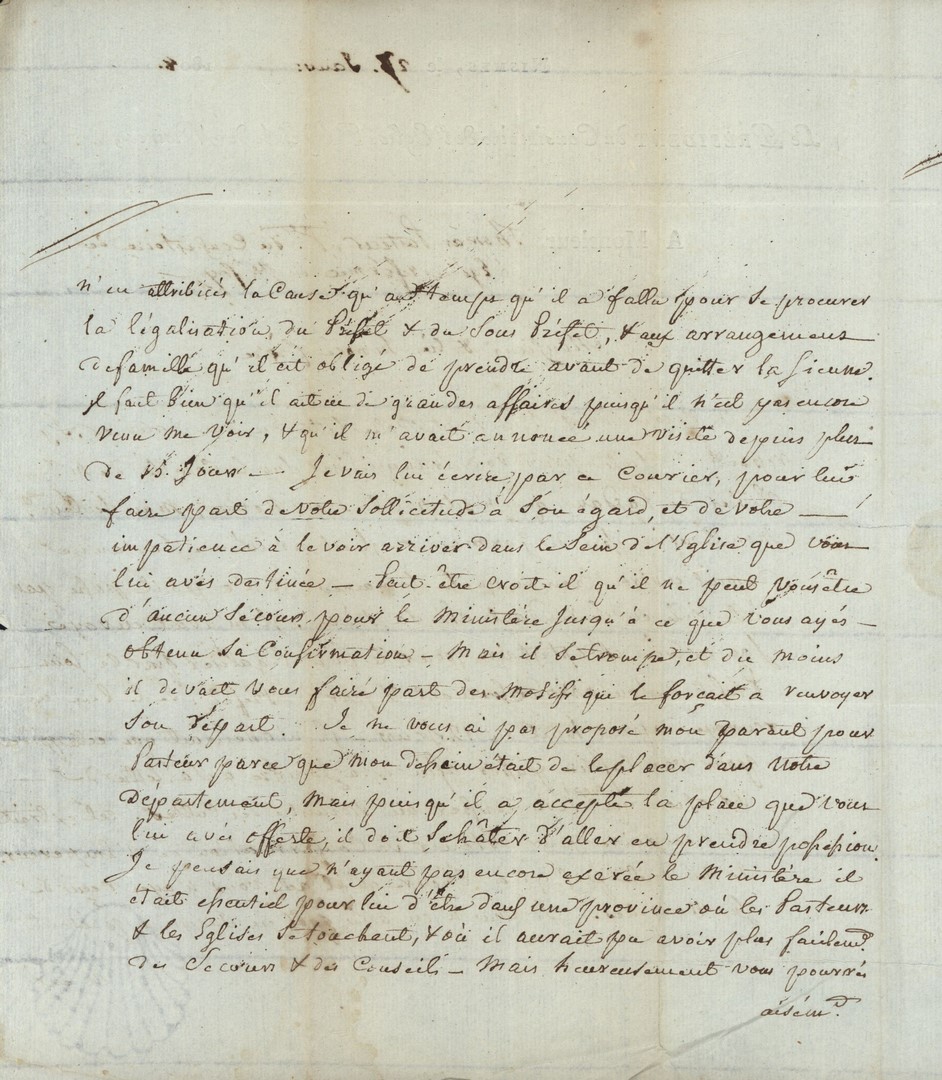 n'en attribués la Cause qu'au temps qu'il a fallu pour se procurer
la légalisation du Préfet & du Sous Préfet, & aux arrangemens
de famille qu'il est obligé de prendre avant de quitter la Sienne.
il faut bien qu'il ait eu de grandes affaires puisqu'il n'est pas encore
venu me voir, & qu'il m'avait annoncé une visite depuis plus
de 15. Jours — Je vais lui écrire par ce Courier, pour lui
faire part de votre Sollicitude à Son égard, et de votre —
impatience à le voir arriver dans le Sein de l'Eglise que vous
lui avés destinée — Peut-être croit il qu'il ne peut vous être
d'aucun Secours pour le Ministère Jusqu'à ce que vous ayés —
obtenu Sa Confirmation — Mais il Se trompe, et du moins
il devait vous faire part des Motifs qui le forçait a renvoyer
Son Départ. Je ne vous ai pas proposé mon parent pour
Pasteur parce que mon dessein était de le placer dans notre
Département, Mais puisqu'il a accepté la place que vous
lui avés offerte, il doit Se hâter d'aller en prendre possession.
Je pensais que n'ayant pas encore exercé le Ministère il
était essentiel pour lui d'être dans une province où les Pasteurs
& les Eglises Se touchant, & où il aurait pu avoir plus facilem.t
des Secours & des Conseils — Mais heureusement vous pourrés
aisém.t